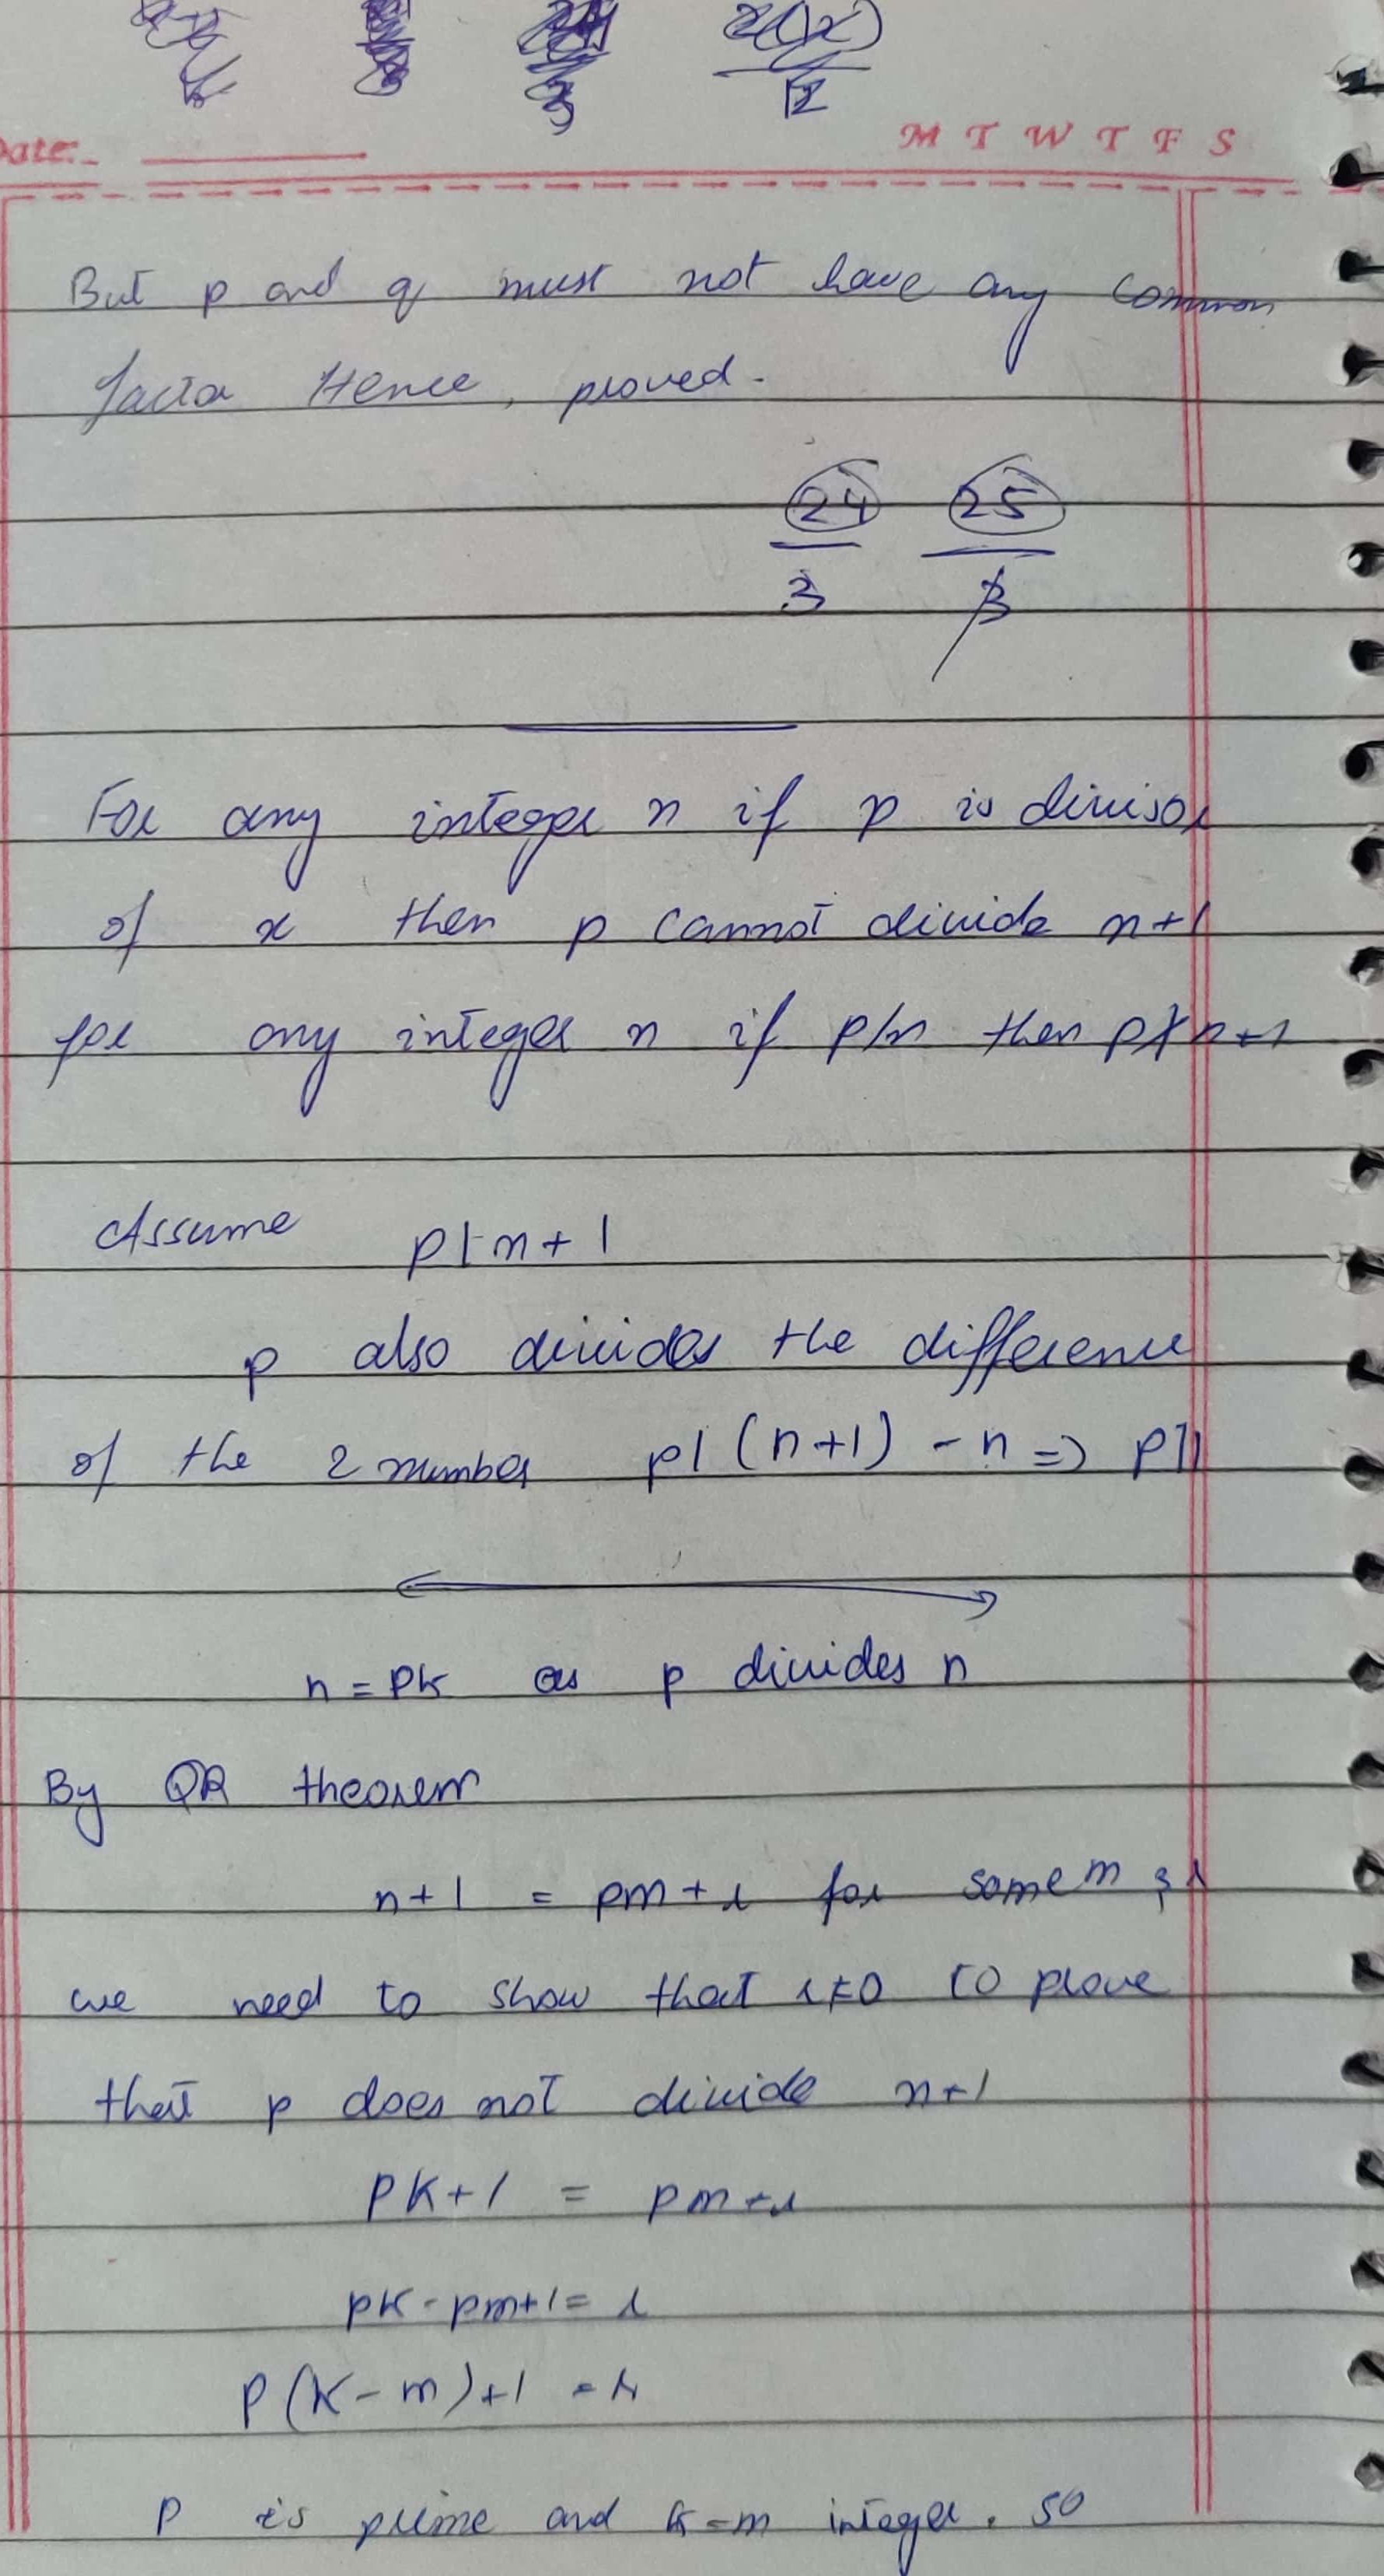 x(x)
12
Date:
M T W T F S
But p and q must not have any common
factor Hence, proved.
24 25
3 3
For any integer n if p is divisor
of x then p cannot divide n+1
for any integer n if p/n then p∤n+1
Assume p∤n+1
p also divides the difference
of the 2 number p|(n+1)-n => p|1
n = pk as p divides n
By QR theorem
n+1 = pm+r for some m, r
we need to show that r≠0 to prove
that p does not divide n+1
pk+1 = pm+r
pk-pm+1= r
p(k-m)+1 = r
p is prime and k-m integer. so